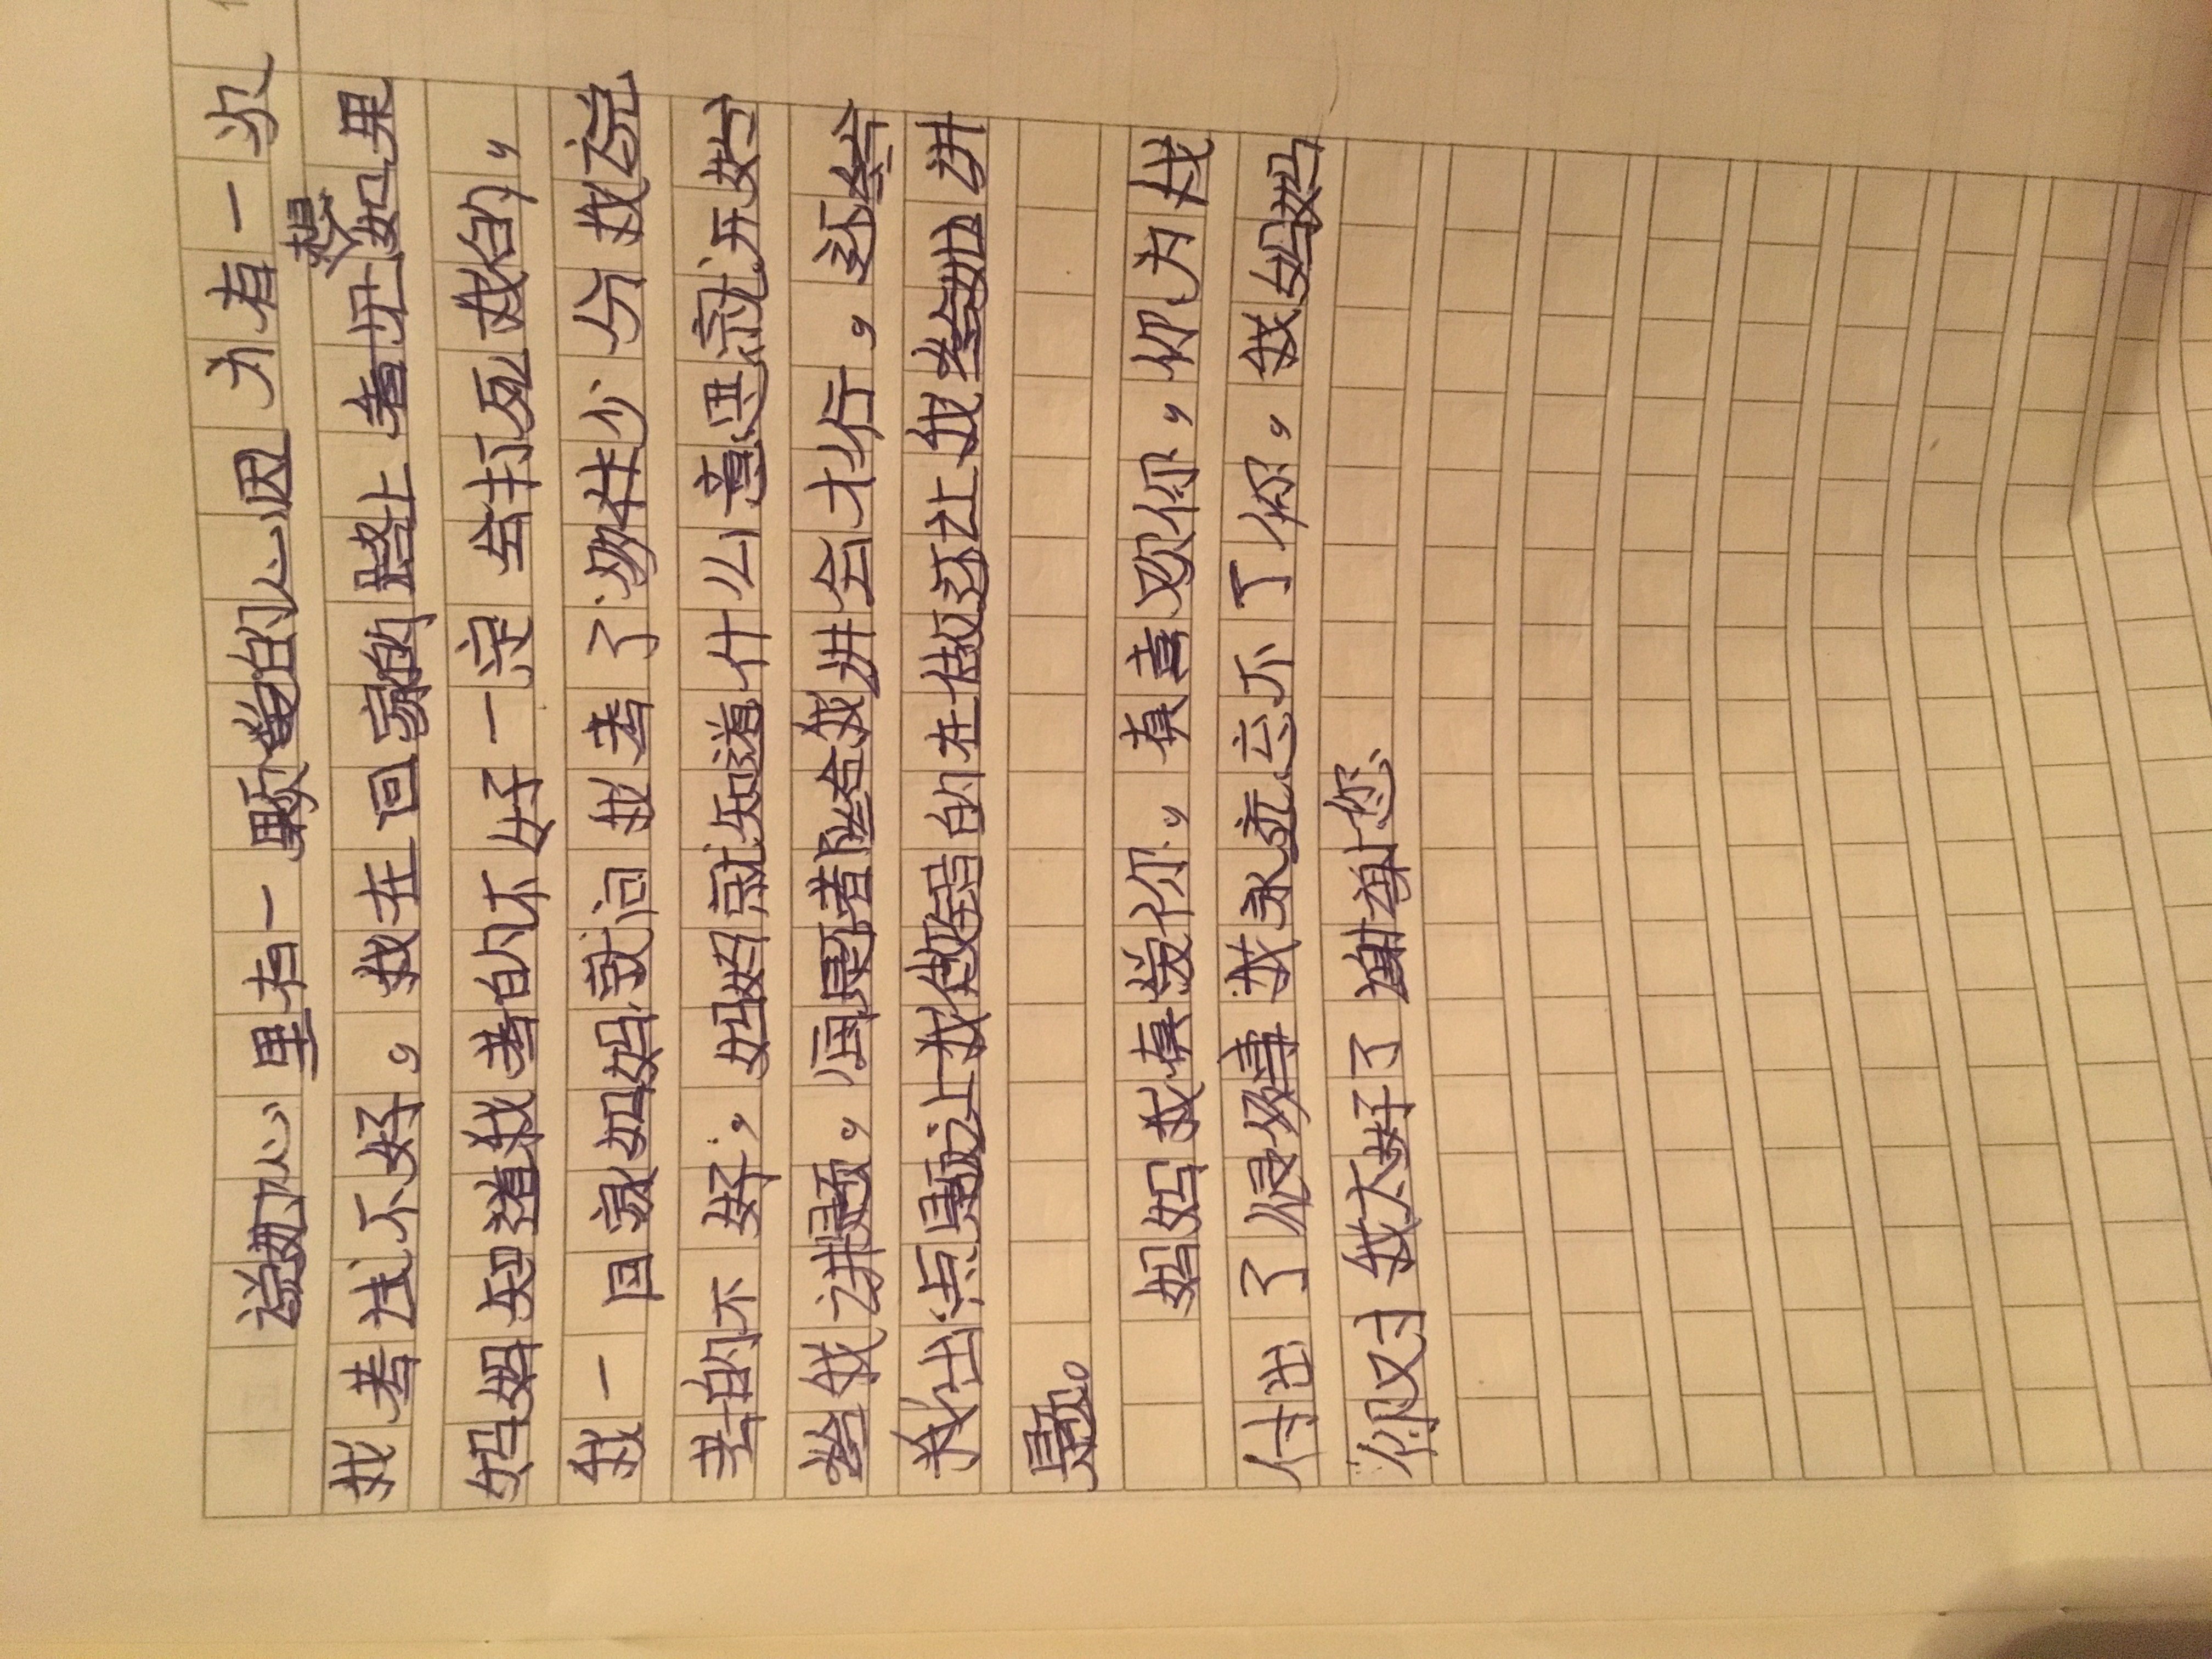 说她心里有一颗爱的心因为有一次
我考试不好。我在回家的路上着边想如果
妈妈知道我考的不好一定会打死我的，
我一回家妈妈就问我考了多样少分我说
考的不好，妈妈就知道什么意思就开始
给我讲题。每题都给我讲会才行，还给
我出点题让我做错的在做这让我参加讲
题。
妈妈我真爱你，真喜欢你，你为我
付出了很多事我永远忘不了你，我妈妈
你又对我太好了谢谢您